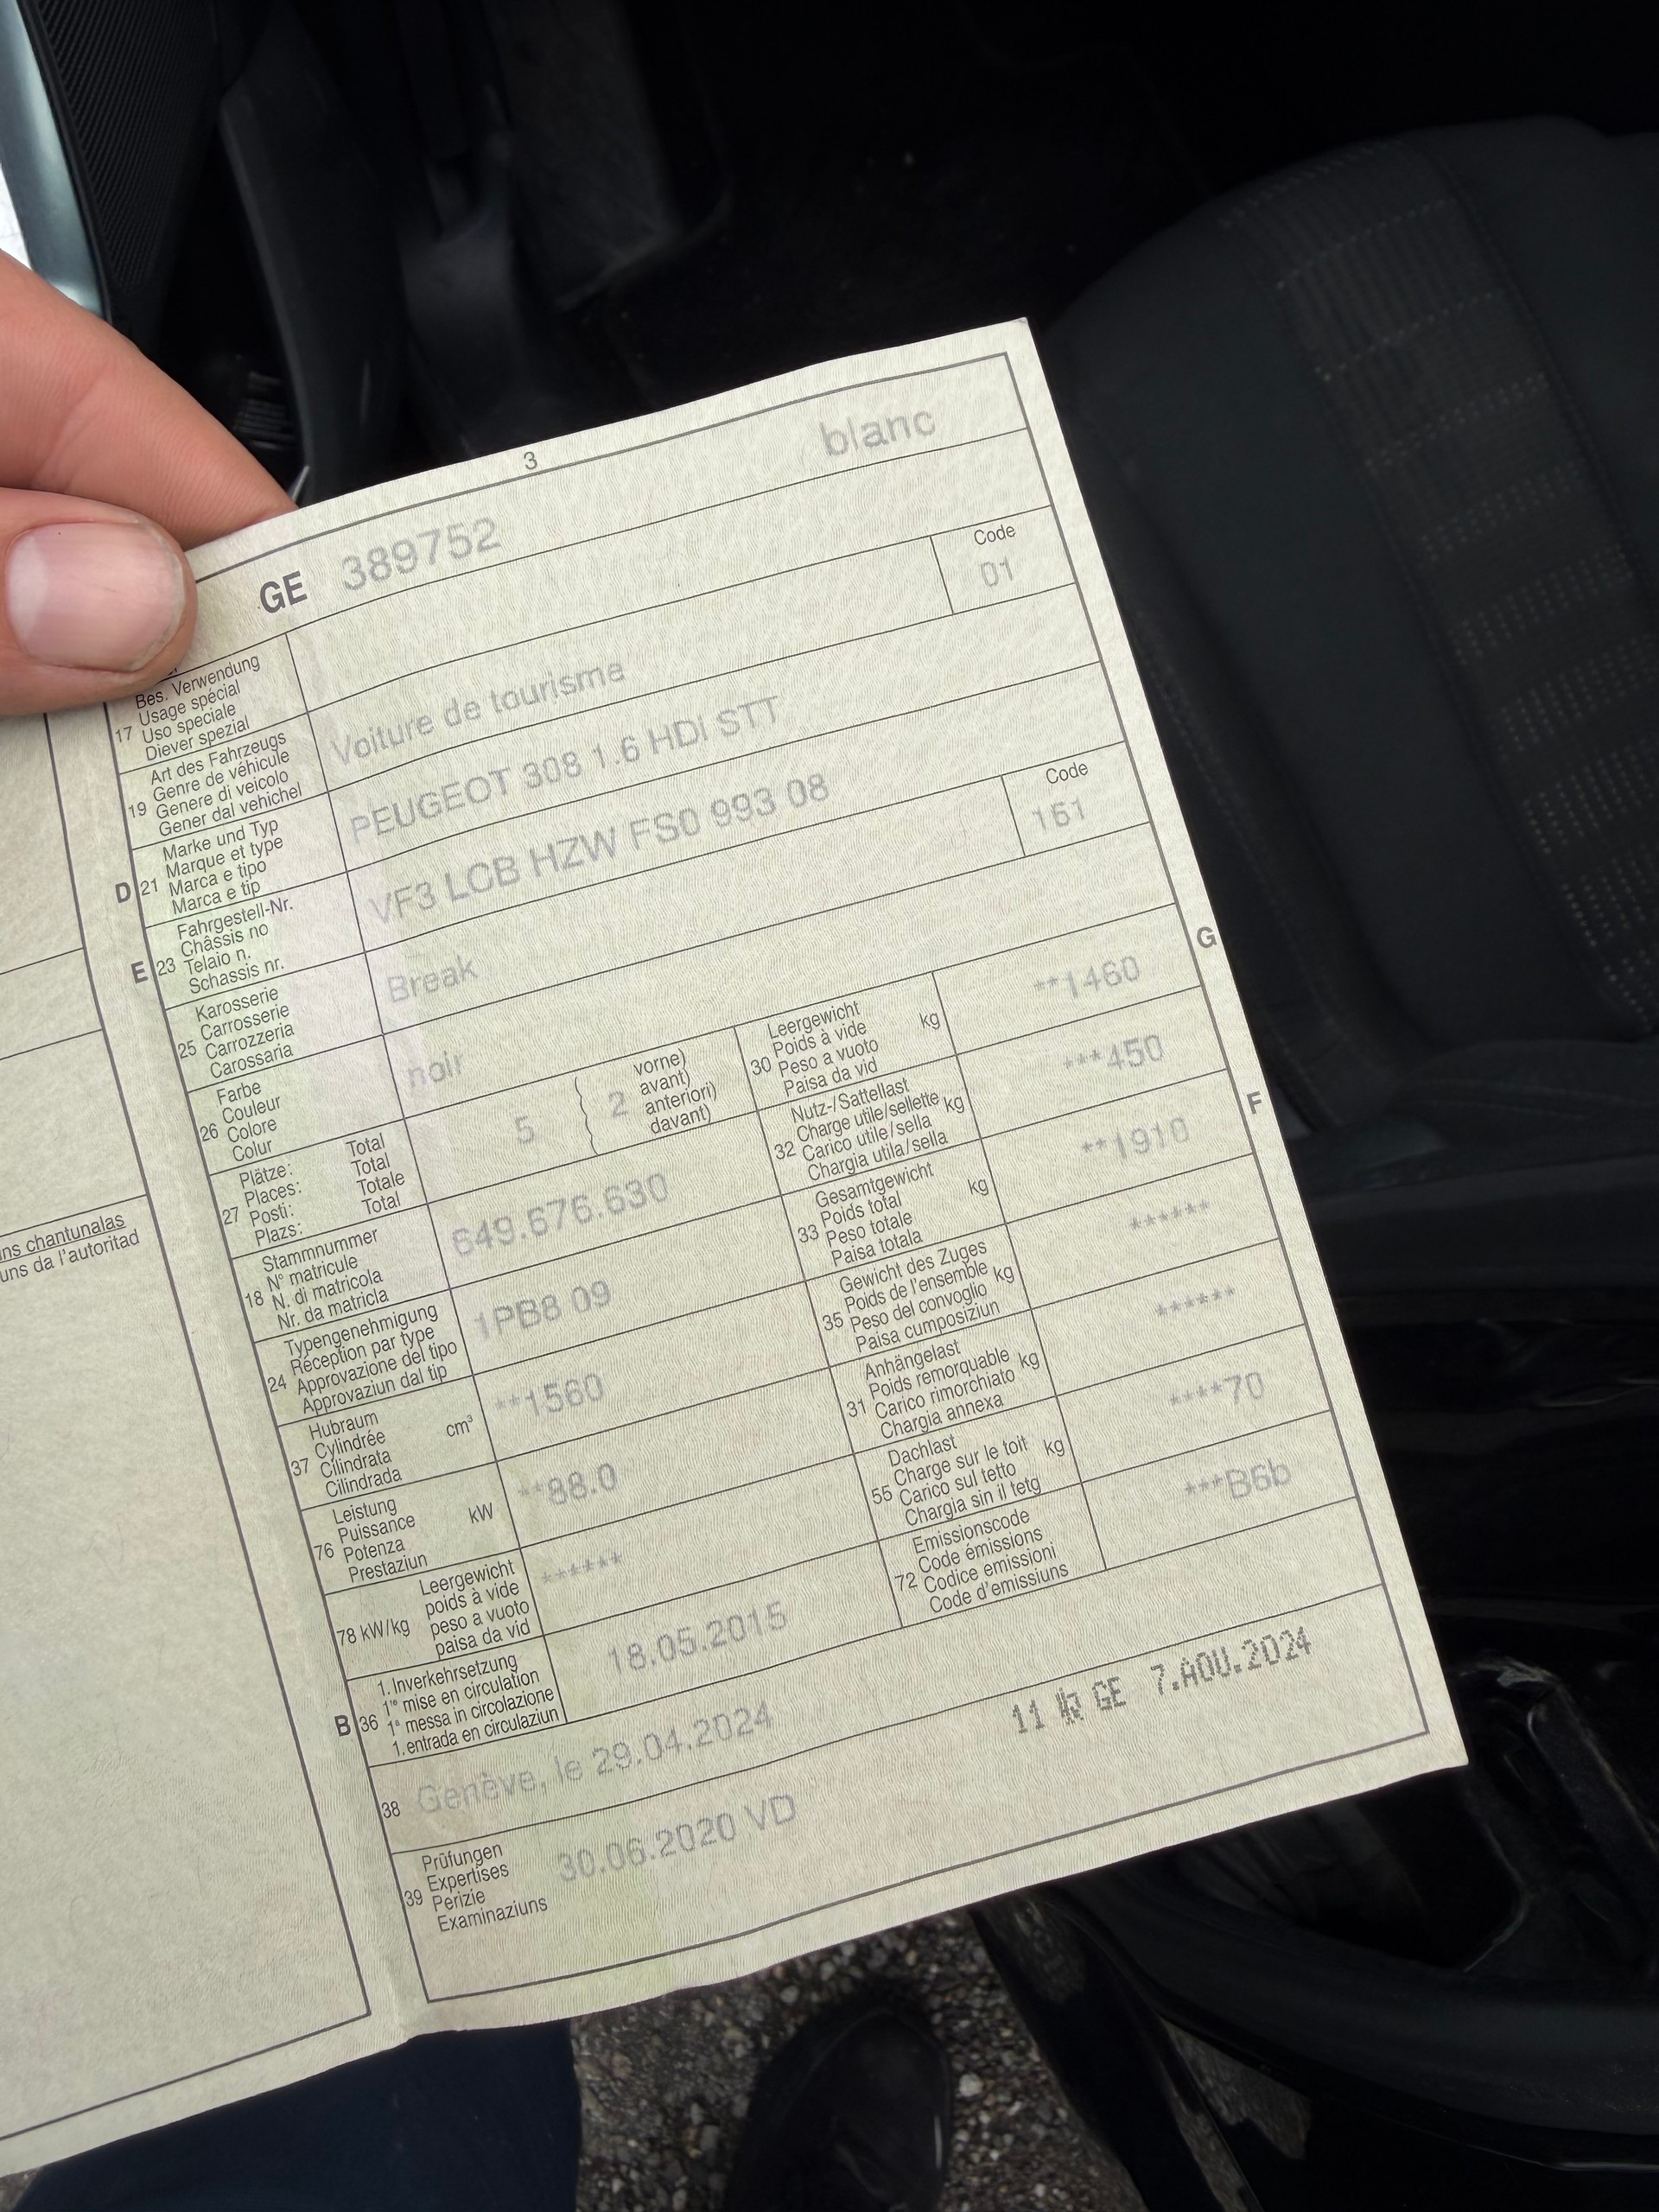 3
GE 389752 blanc
Bes. Verwendung
Usage spécial
17 Uso speciale
Diever spezial
Code
01
Art des Fahrzeugs
Genre de véhicule
19 Genere di veicolo
Gener dal vehichel
Voiture de tourisme
Marke und Typ
Marque et type
D 21 Marca e tipo
Marca e tip
PEUGEOT 308 1.6 HDi STT
Fahrgestell-Nr.
Châssis no
E 23 Telaio n.
Schassis nr.
VF3 LCB HZW FS0 993 08
Karosserie
Carrosserie
25 Carrozzeria
Carossaria
Break
Code
151
Farbe
Couleur
26 Colore
Colur
noir
Plätze: Total
Places: Total
27 Posti: Totale
Plazs: Total
5 ( 2 vorne)
avant)
anteriori)
davant)
Stammnummer
N° matricule
18 N. di matricola
Nr. da matricla
649.676.630
Typengenehmigung
Réception par type
24 Approvazione del tipo
Approvaziun dal tip
1PB8 09
Hubraum
Cylindrée cm³
37 Cilindrata
Cilindrada
**1560
Leistung
Puissance kW
76 Potenza
Prestaziun
**88.0
Leergewicht
poids à vide
78 kW/kg peso a vuoto
paisa da vid
******
1. Inverkehrsetzung
1re mise en circulation
B 36 1a messa in circolazione
1. entrada en circulaziun
18.05.2015
G
Leergewicht
Poids à vide kg
30 Peso a vuoto
Paisa da vid
**1460
Nutz-/Sattellast
Charge utile/sellette kg
32 Carico utile/sella
Chargia utila/sella
***450
F
Gesamtgewicht
Poids total kg
33 Peso totale
Paisa totala
**1910
Gewicht des Zuges
Poids de l'ensemble kg
35 Peso del convoglio
Paisa cumposiziun
******
Anhängelast
Poids remorquable kg
31 Carico rimorchiato
Chargia annexa
******
Dachlast
Charge sur le toit kg
55 Carico sul tetto
Chargia sin il tetg
****70
Emissionscode
Code émissions
72 Codice emissioni
Code d'emissiuns
***B6b
38 Genève, le 29.04.2024
11 GE 7.AOU.2024
Prüfungen
Expertises
39 Perizie
Examinaziuns
30.06.2020 VD
chantunalas
da l'autoritad